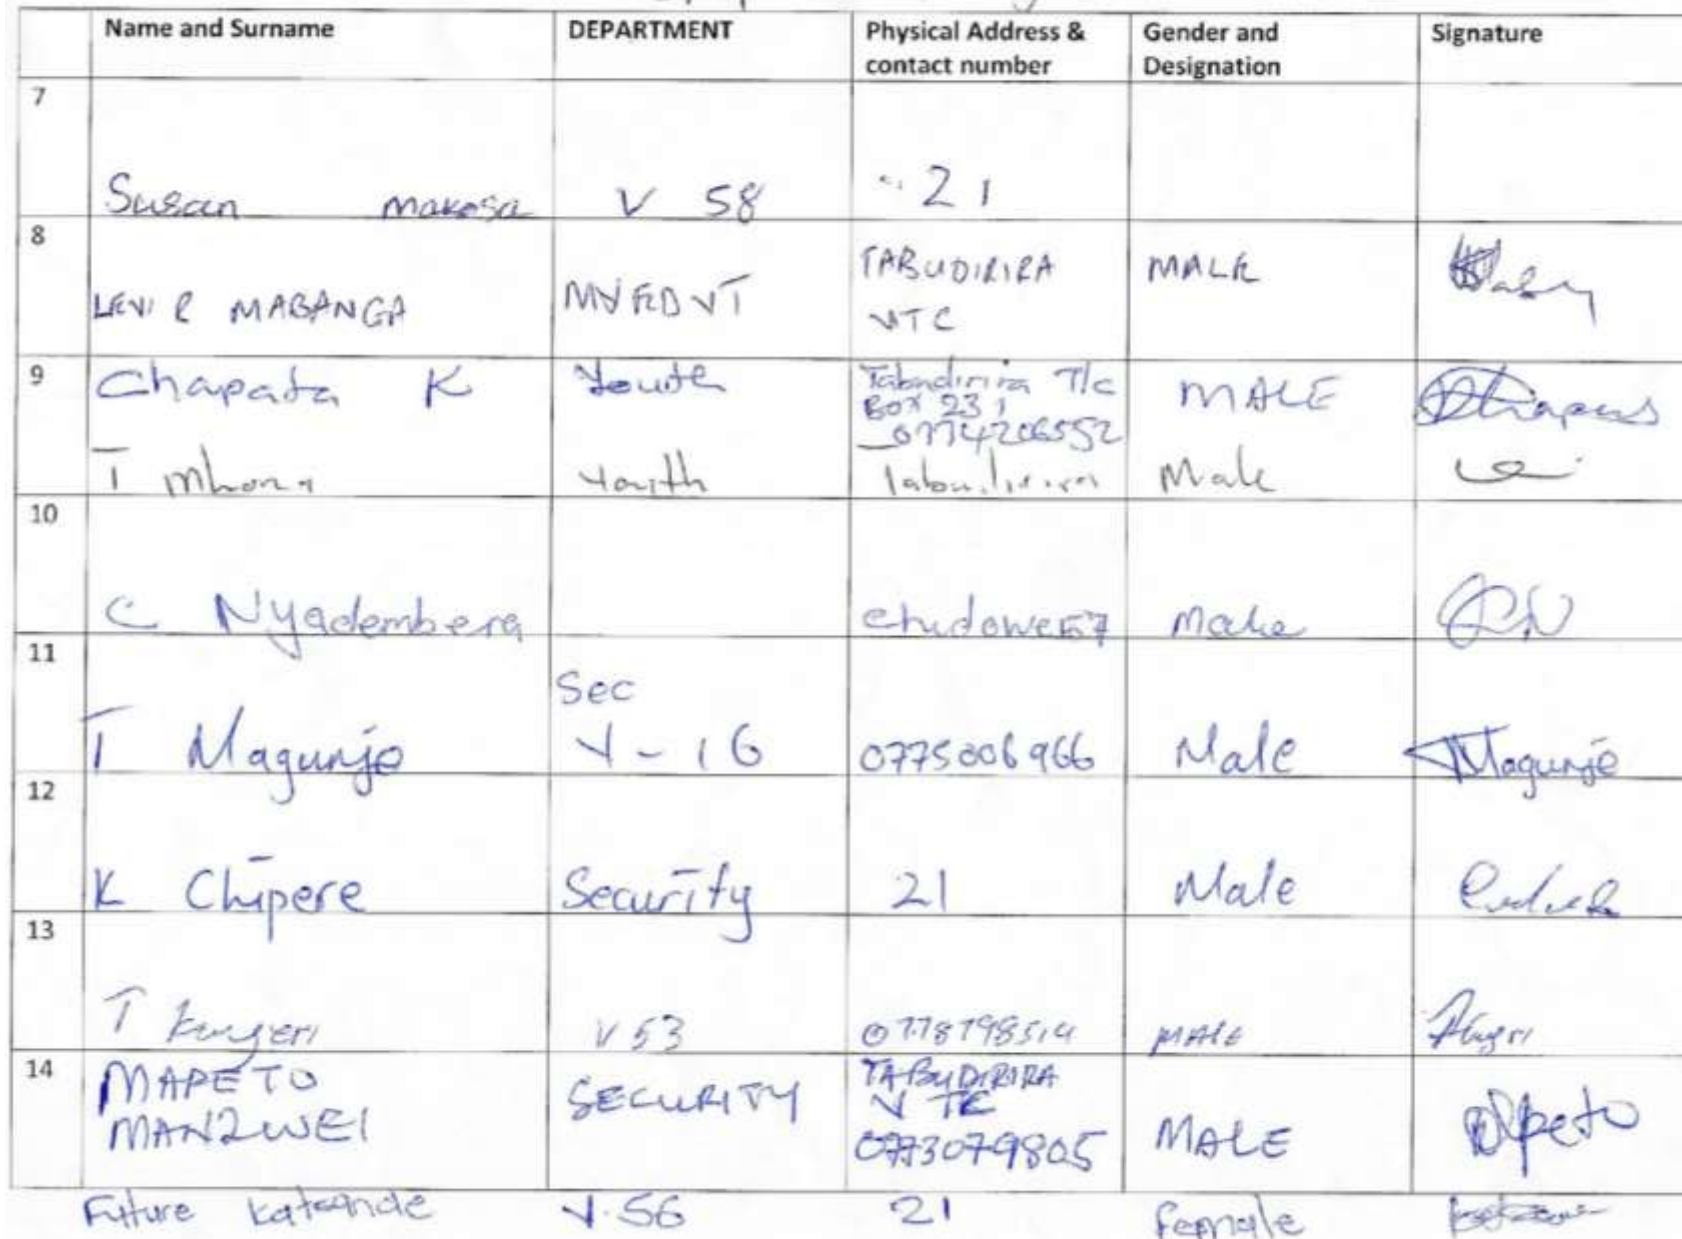 Name and Surname DEPARTMENT Physical Address & contact number Gender and Designation Signature
7
Susan Makosa V 58 21
8
LEVI R MABANGA MALE
TABUDIRIRA
VTC
9
Chapata K Youth Tabudirira T/c MALE
Box 231
0774206552
T Mhona Youth Tabudirira Male
10
C Nyadembera Male
11
Sec
T Magunje V-16 0775006966 Male TMagunje
12
K Chipere Security 21 Male
13
T V 53 0778798514 MALE
14
MAPETO SECURITY TABUDIRIRA
MANZWEI VTC
0773079805 MALE
Future Katsande V.56 21 female